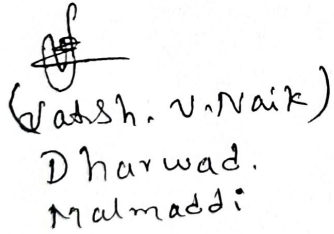 (Vatsh. V. Naik)
Dharwad.
Malmaddi